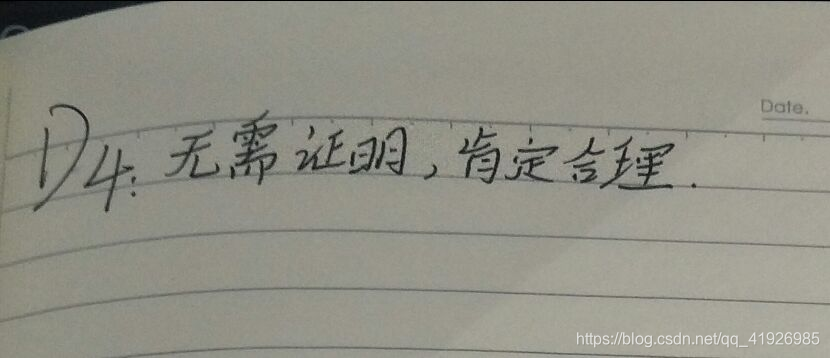 Date.
D4:无需证明,肯定合理.
https://blog.csdn.net/qq_41926985